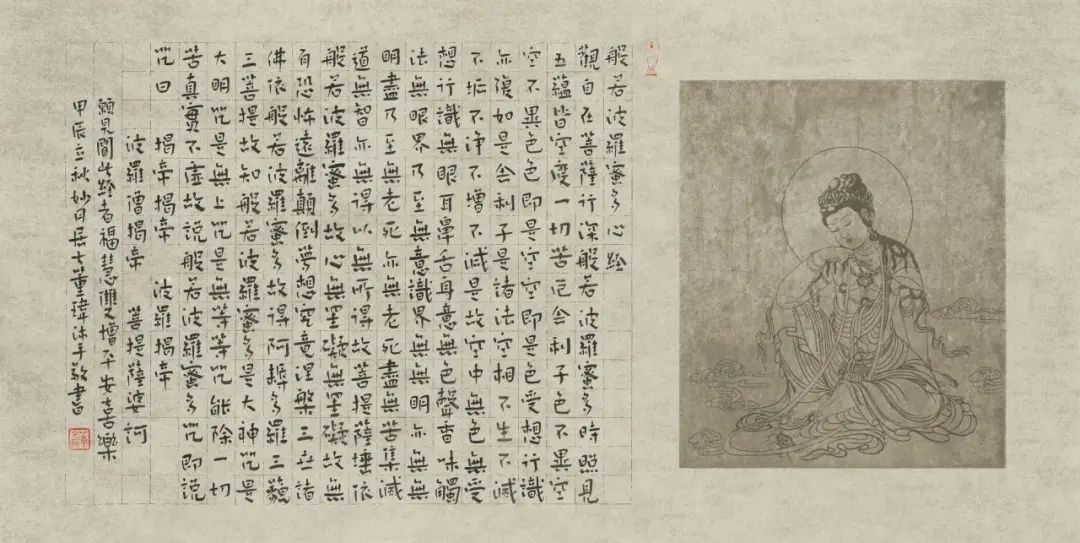 般若波羅蜜多心經
觀自在菩薩行深般若波羅蜜多時照見
五蘊皆空度一切苦厄舍利子色不異空
空不異色色即是空空即是色受想行識
亦復如是舍利子是諸法空相不生不滅
不垢不淨不增不減是故空中無色無受
想行識無眼耳鼻舌身意無色聲香味觸
法無眼界乃至無意識界無無明亦無無
明盡乃至無老死亦無老死盡無苦集滅
道無智亦無得以無所得故菩提薩埵依
般若波羅蜜多故心無罣礙無罣礙故無
有恐怖遠離顛倒夢想究竟涅槃三世諸
佛依般若波羅蜜多故得阿耨多羅三藐
三菩提故知般若波羅蜜多是大神咒是
大明咒是無上咒是無等等咒能除一切
苦真實不虛故說般若波羅蜜多咒即說
咒曰 揭帝揭帝 波羅揭帝
波羅僧揭帝 菩提薩婆訶
願見聞此經者福慧雙增平安喜樂
甲辰立秋妙月居士董瑋沐手敬書